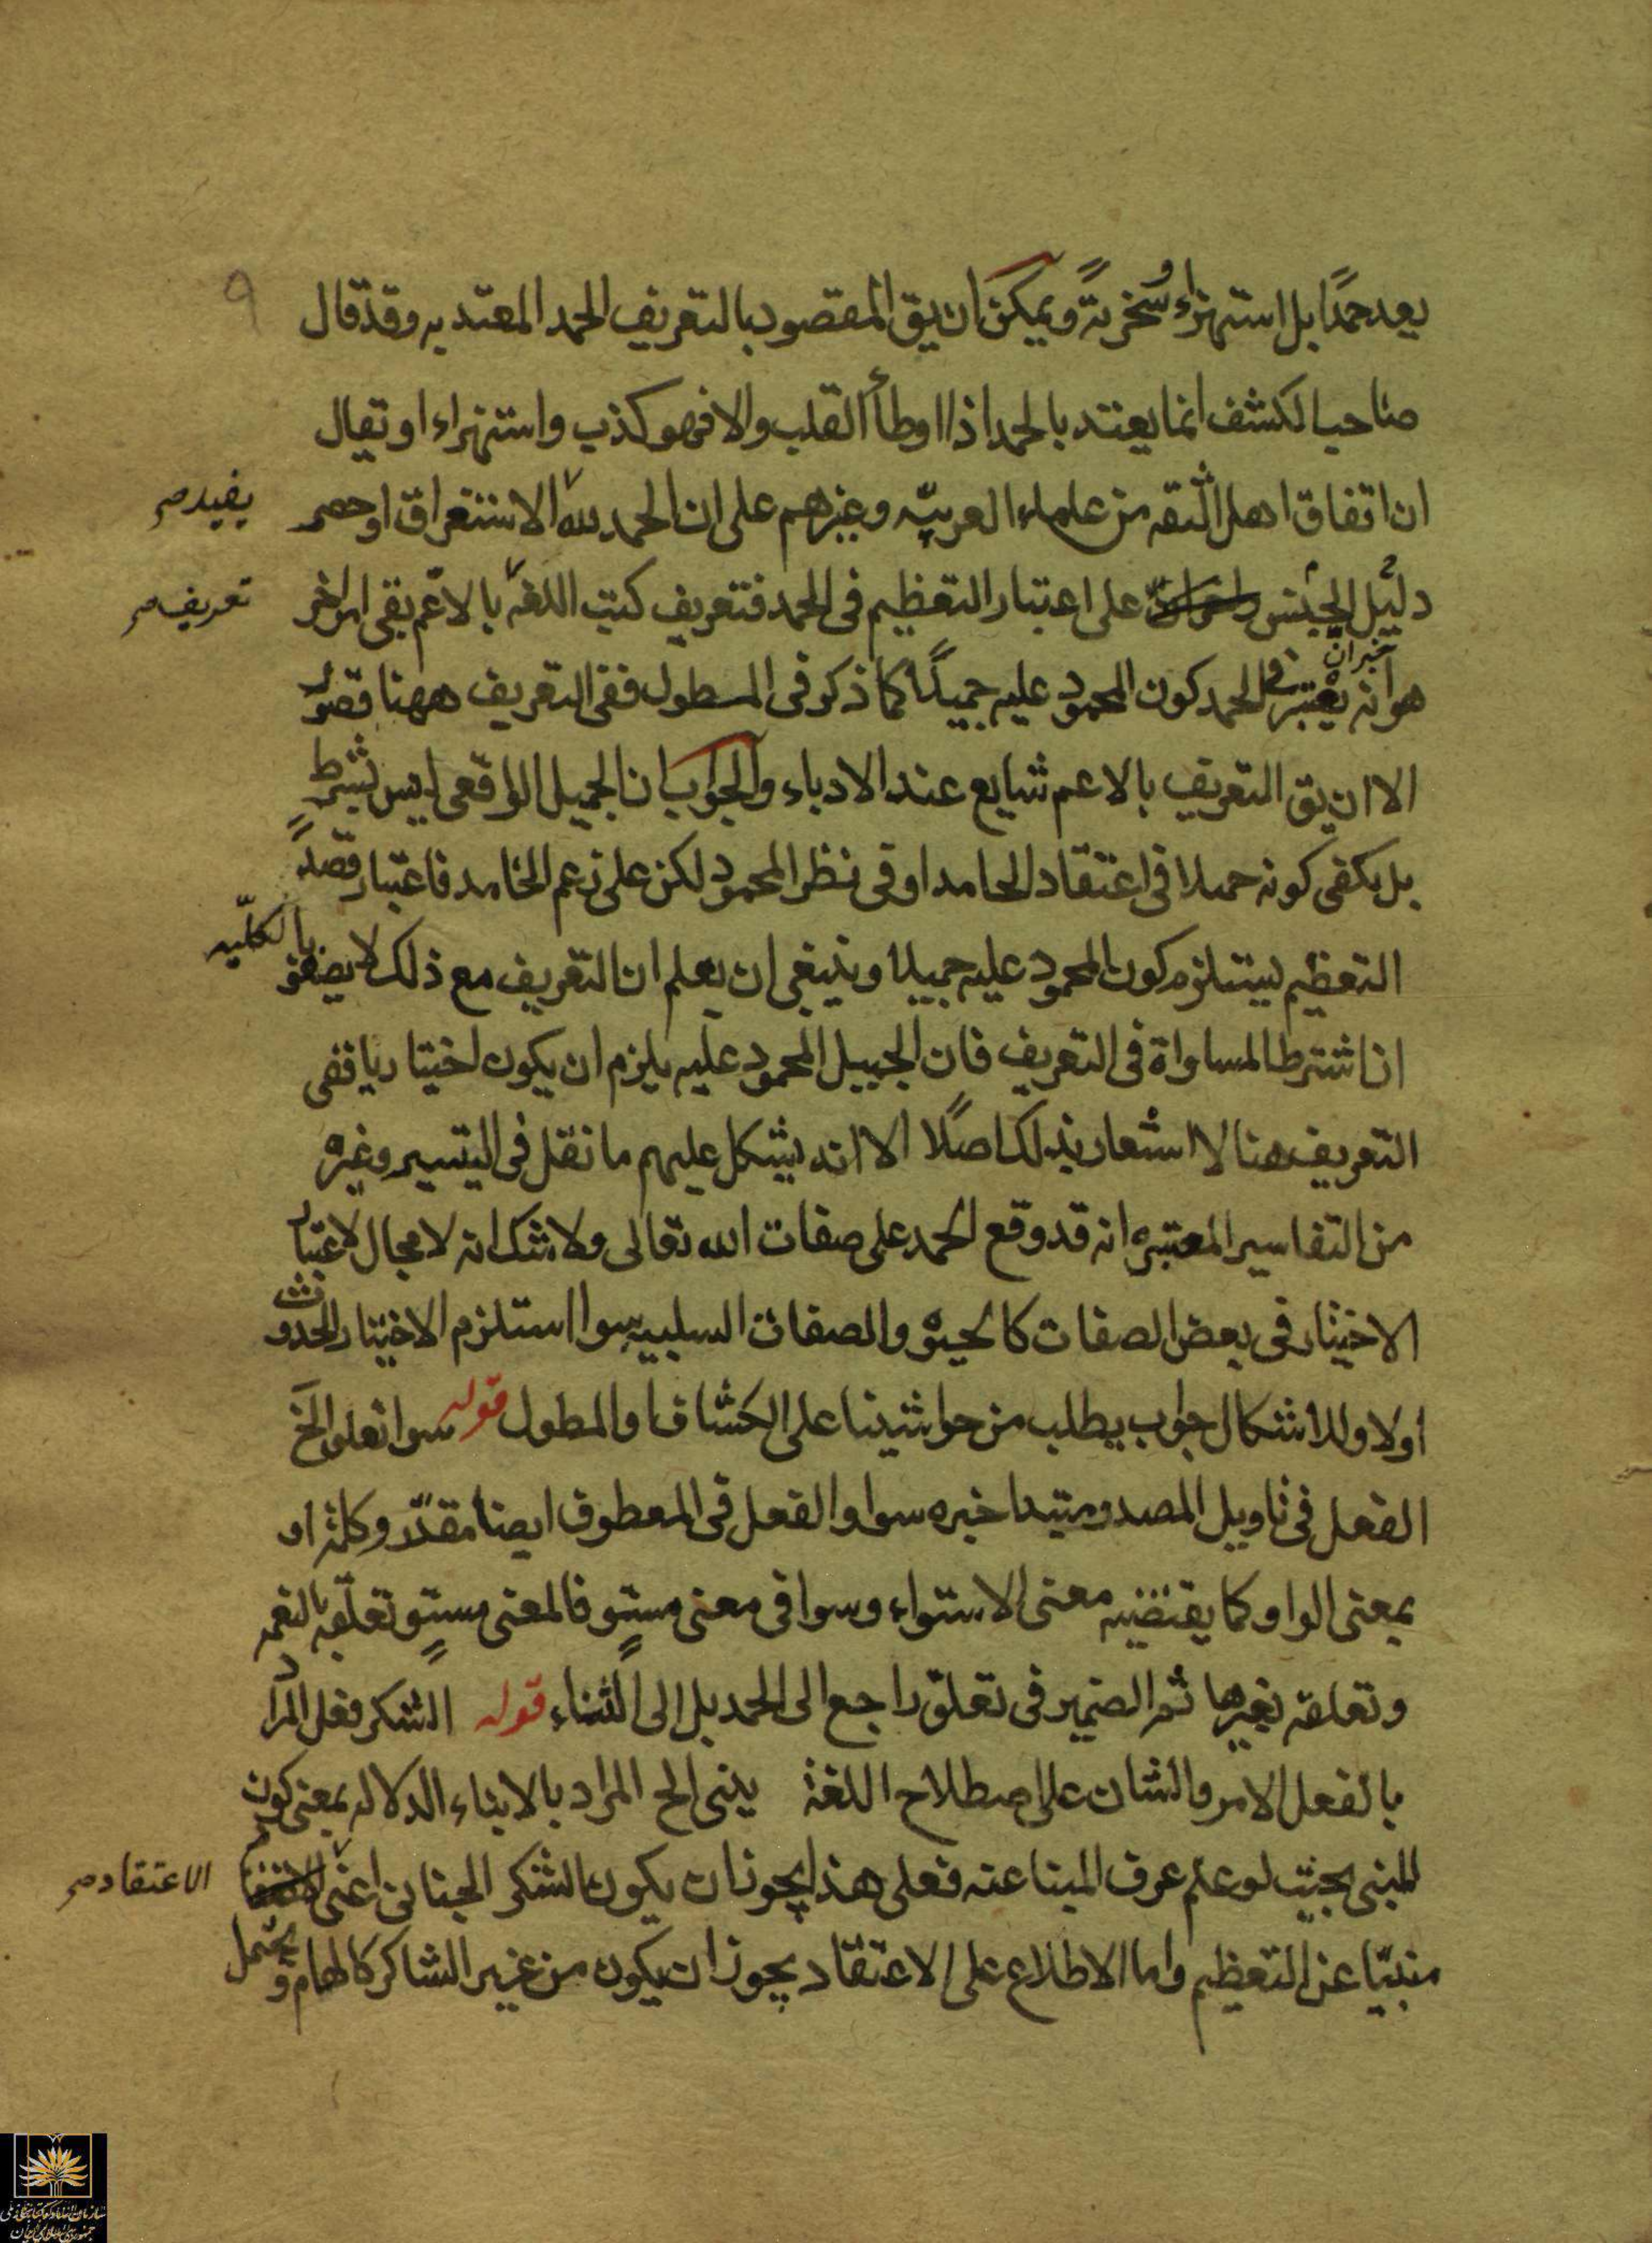 ٩
يعد حمدًا بل استهزاء وسخرية ويمكن ان يق المقصود بالتعريف الحمد المعتد به وقد قال
صاحب الكشف انما يعتد بالحمد اذا اوطأ القلب والا فهو كذب واستهزاء او تقال
ان اتفاق اهل الثقه من علماء العربيّه وغيرهم على ان الحمد لله الاستغراق او حصر
يفيد صح
دليل الجنس على اعتبار التعظيم فى الحمد فتعريف كتب اللغة بالاعم بقى امر اخر
تعريف صح
هو انه يعتبر فى الحمد كون المحمود عليه جميلًا كما ذكر فى المطول ففى التعريف ههنا قصور
خير ان
الا ان يق التعريف بالاعم شايع عند الادباء والجواب ان الجميل الواقعى ليس بشرط
بل يكفى كونه جميلا فى اعتقاد الحامد او فى نظر المحمود لكن على زعم الحامد فاعتبار قصد
التعظيم يستلزم كون المحمود عليه جميلا وينبغى ان يعلم ان التعريف مع ذلك لا يصفو بالكليّه
ان اشترط المساواة فى التعريف فان الجميل المحمود عليه يلزم ان يكون اختياريا ففى
التعريف هنا لا اشعار بذلك اصلًا الا انه يشكل عليهم ما نقل فى التيسير وغيره
من التفاسير المعتبره انه قد وقع الحمد على صفات الله تعالى ولا شك انه لا مجال لاعتبار
الاختيار فى بعض الصفات كالحيوة والصفات السلبيه سوا استلزم الاختيار الحدوث
اولا ولذا اشكال جواب يطلب من حواشينا على الكشاف او المطول قوله سوا تعلق الخ
الفعل فى تاويل المصدر مبتدا خبره سوا والفعل فى المعطوف ايضا مقدّر وكلمة او
بمعنى الواو كما يقتضيه معنى الاستواء وسوا فى معنى مستو فالمعنى مستو تعلّقه بالنعمه
وتعلقه بغيرها ثم الضمير فى تعلق راجع الى الحمد بل الى الثناء قوله الشكر فعل المراد
بالفعل الامر والشان على اصطلاح اللغة ينبى الخ المراد بالانباء الدلاله بمعنى كون
المنبى بحيث لو علم عرف المنبا عنه فعلى هذا يجوز ان يكون الشكر الجنانى اعنى
الاعتقاد صح
منبيّا عن التعظيم واما الاطلاع على الاعتقاد يجوز ان يكون من غير الشاكر كالهام ويحتمل